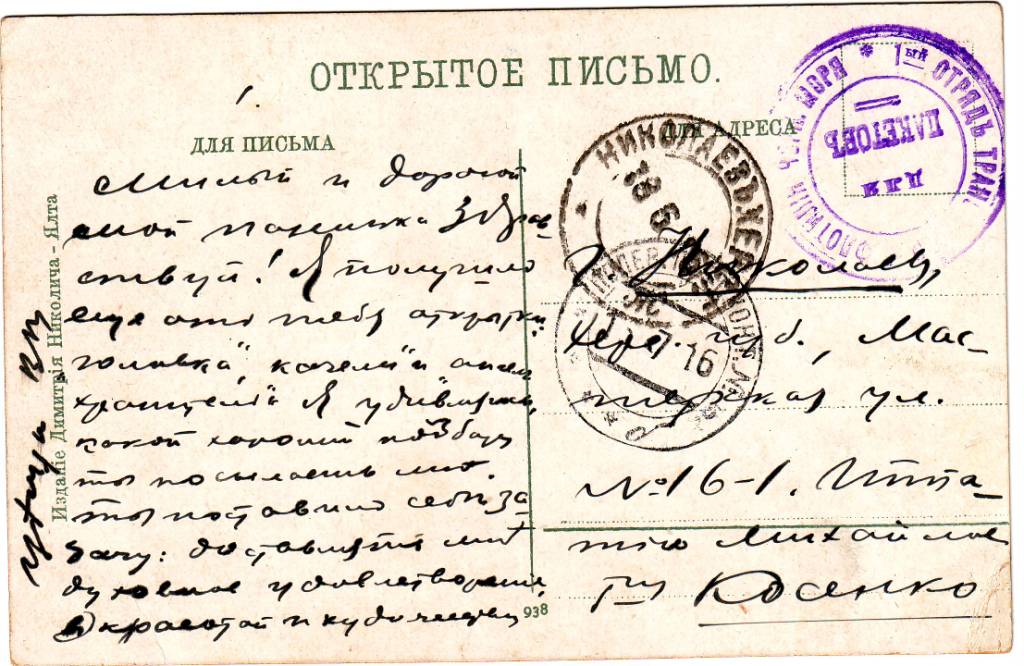 ОТКРЫТОЕ ПИСЬМО.
ДЛЯ ПИСЬМА
ДЛЯ АДРЕСА
Милый и дорогой
мой папичка Здрав-
ствуй! Я получил
еще от тебя открытки
головка" качели" и ангел
хранитель" Я удивляюсь,
какой хороший подбор
ты посылаешь мнѣ.
ты поставил себѣ за-
дачу: доставлять мнѣ
духовное удовлетворение
в красотой и художеством
Издание Димитрія Николича - Ялта
938
г. Николаев,
Херс. губ., Мас-
терская ул.
№16-1. Игна-
тию Михайлов
гну Косенко
НИКОЛАЕВЪ ХЕР
18 6
7 16
1ый ОТРЯДЪ ТРАН.
ФЛОТИЛІИ ЧЕРН. МОРЯ
ДЛЯ
ПАКЕТОВЪ